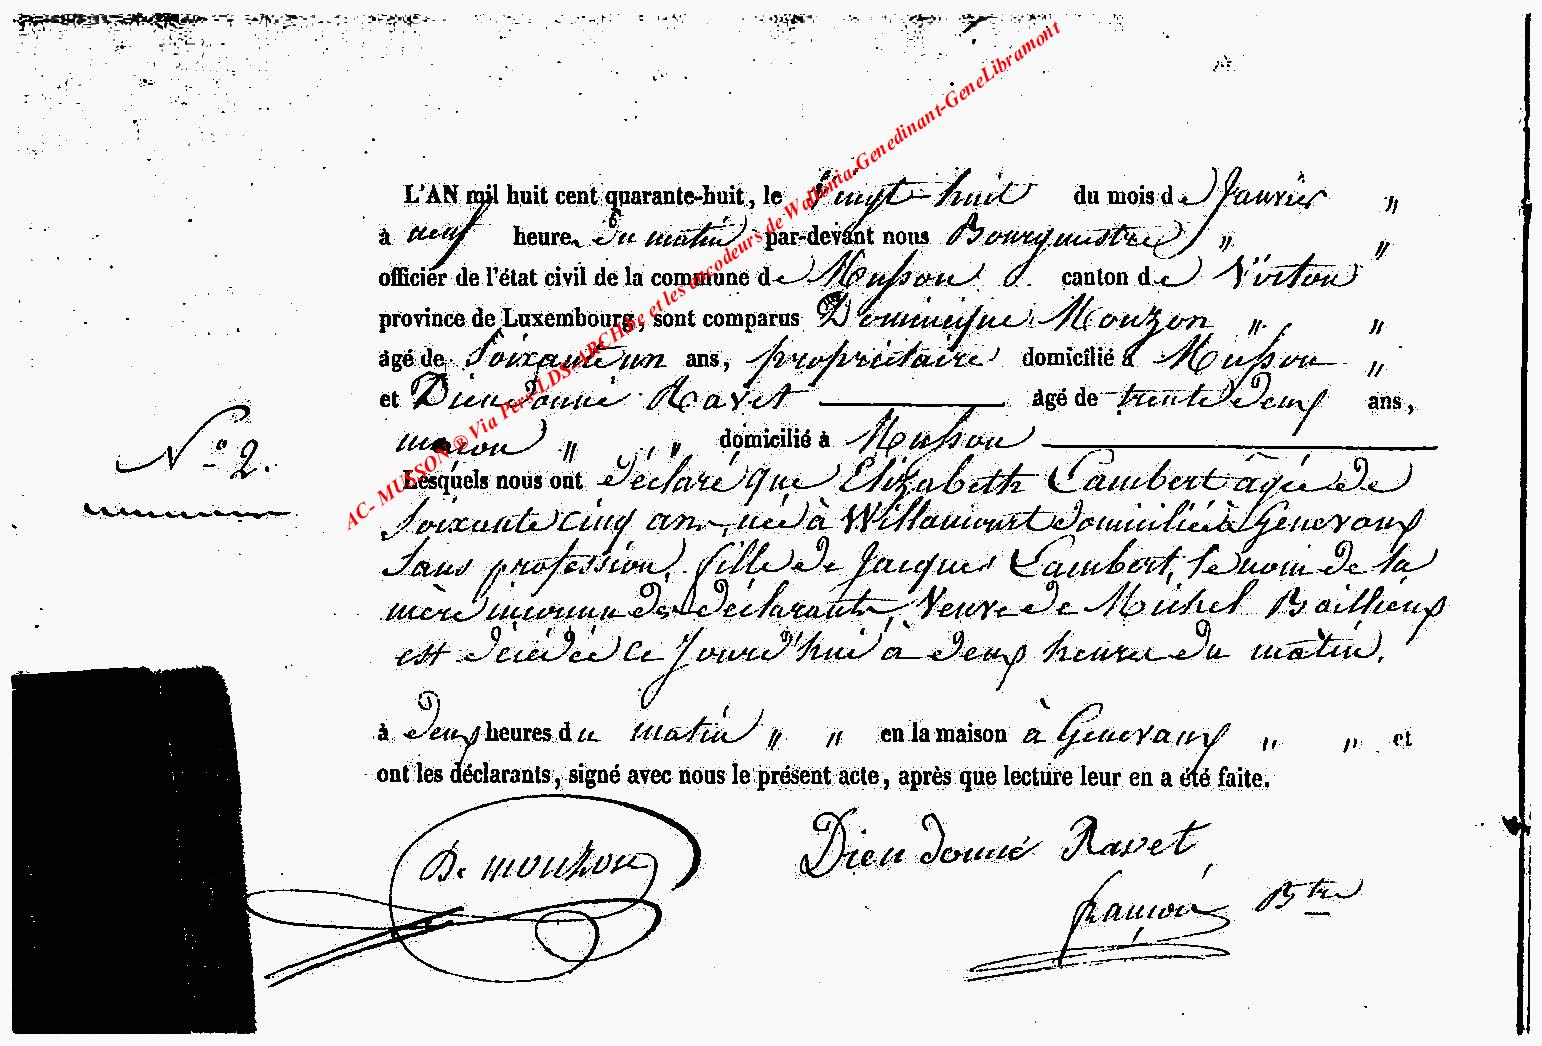 L'AN mil huit cent quarante-huit, le Vingt-huit du mois de Janvier "
à neuf heures du matin par-devant nous Bourgmestre " "
officier de l'état civil de la commune de Musson canton de Virton
province de Luxembourg, sont comparus Dominique Mouzon " "
agé de Soixante un ans, propriétaire domicilié à Musson "
et Dieudonné Ravet agé de trente deux ans,
maçon " " domicilié à Musson
N° 2.
Lesquels nous ont déclaré que Elizabeth Lambert âgée de
Soixante cinq ans, née à Willancourt domiciliée à Genevaux
Sans profession, fille de Jacques Lambert, le nom de la
mère inconnu des déclarants, Veuve de Michel Baillieux
est décédée ce Jourd'hui à deux heures du matin.
à deux heures du matin " " en la maison à Genevaux " " et
ont les déclarants, signé avec nous le présent acte, après que lecture leur en a été faite.
D. mouzon
Dieudonné Ravet
françois Btre
AC- MUSSON ® Via Pers-LDS-ARCHBe et les encodeurs de Wallonia-Genedinant-GeneLibramont